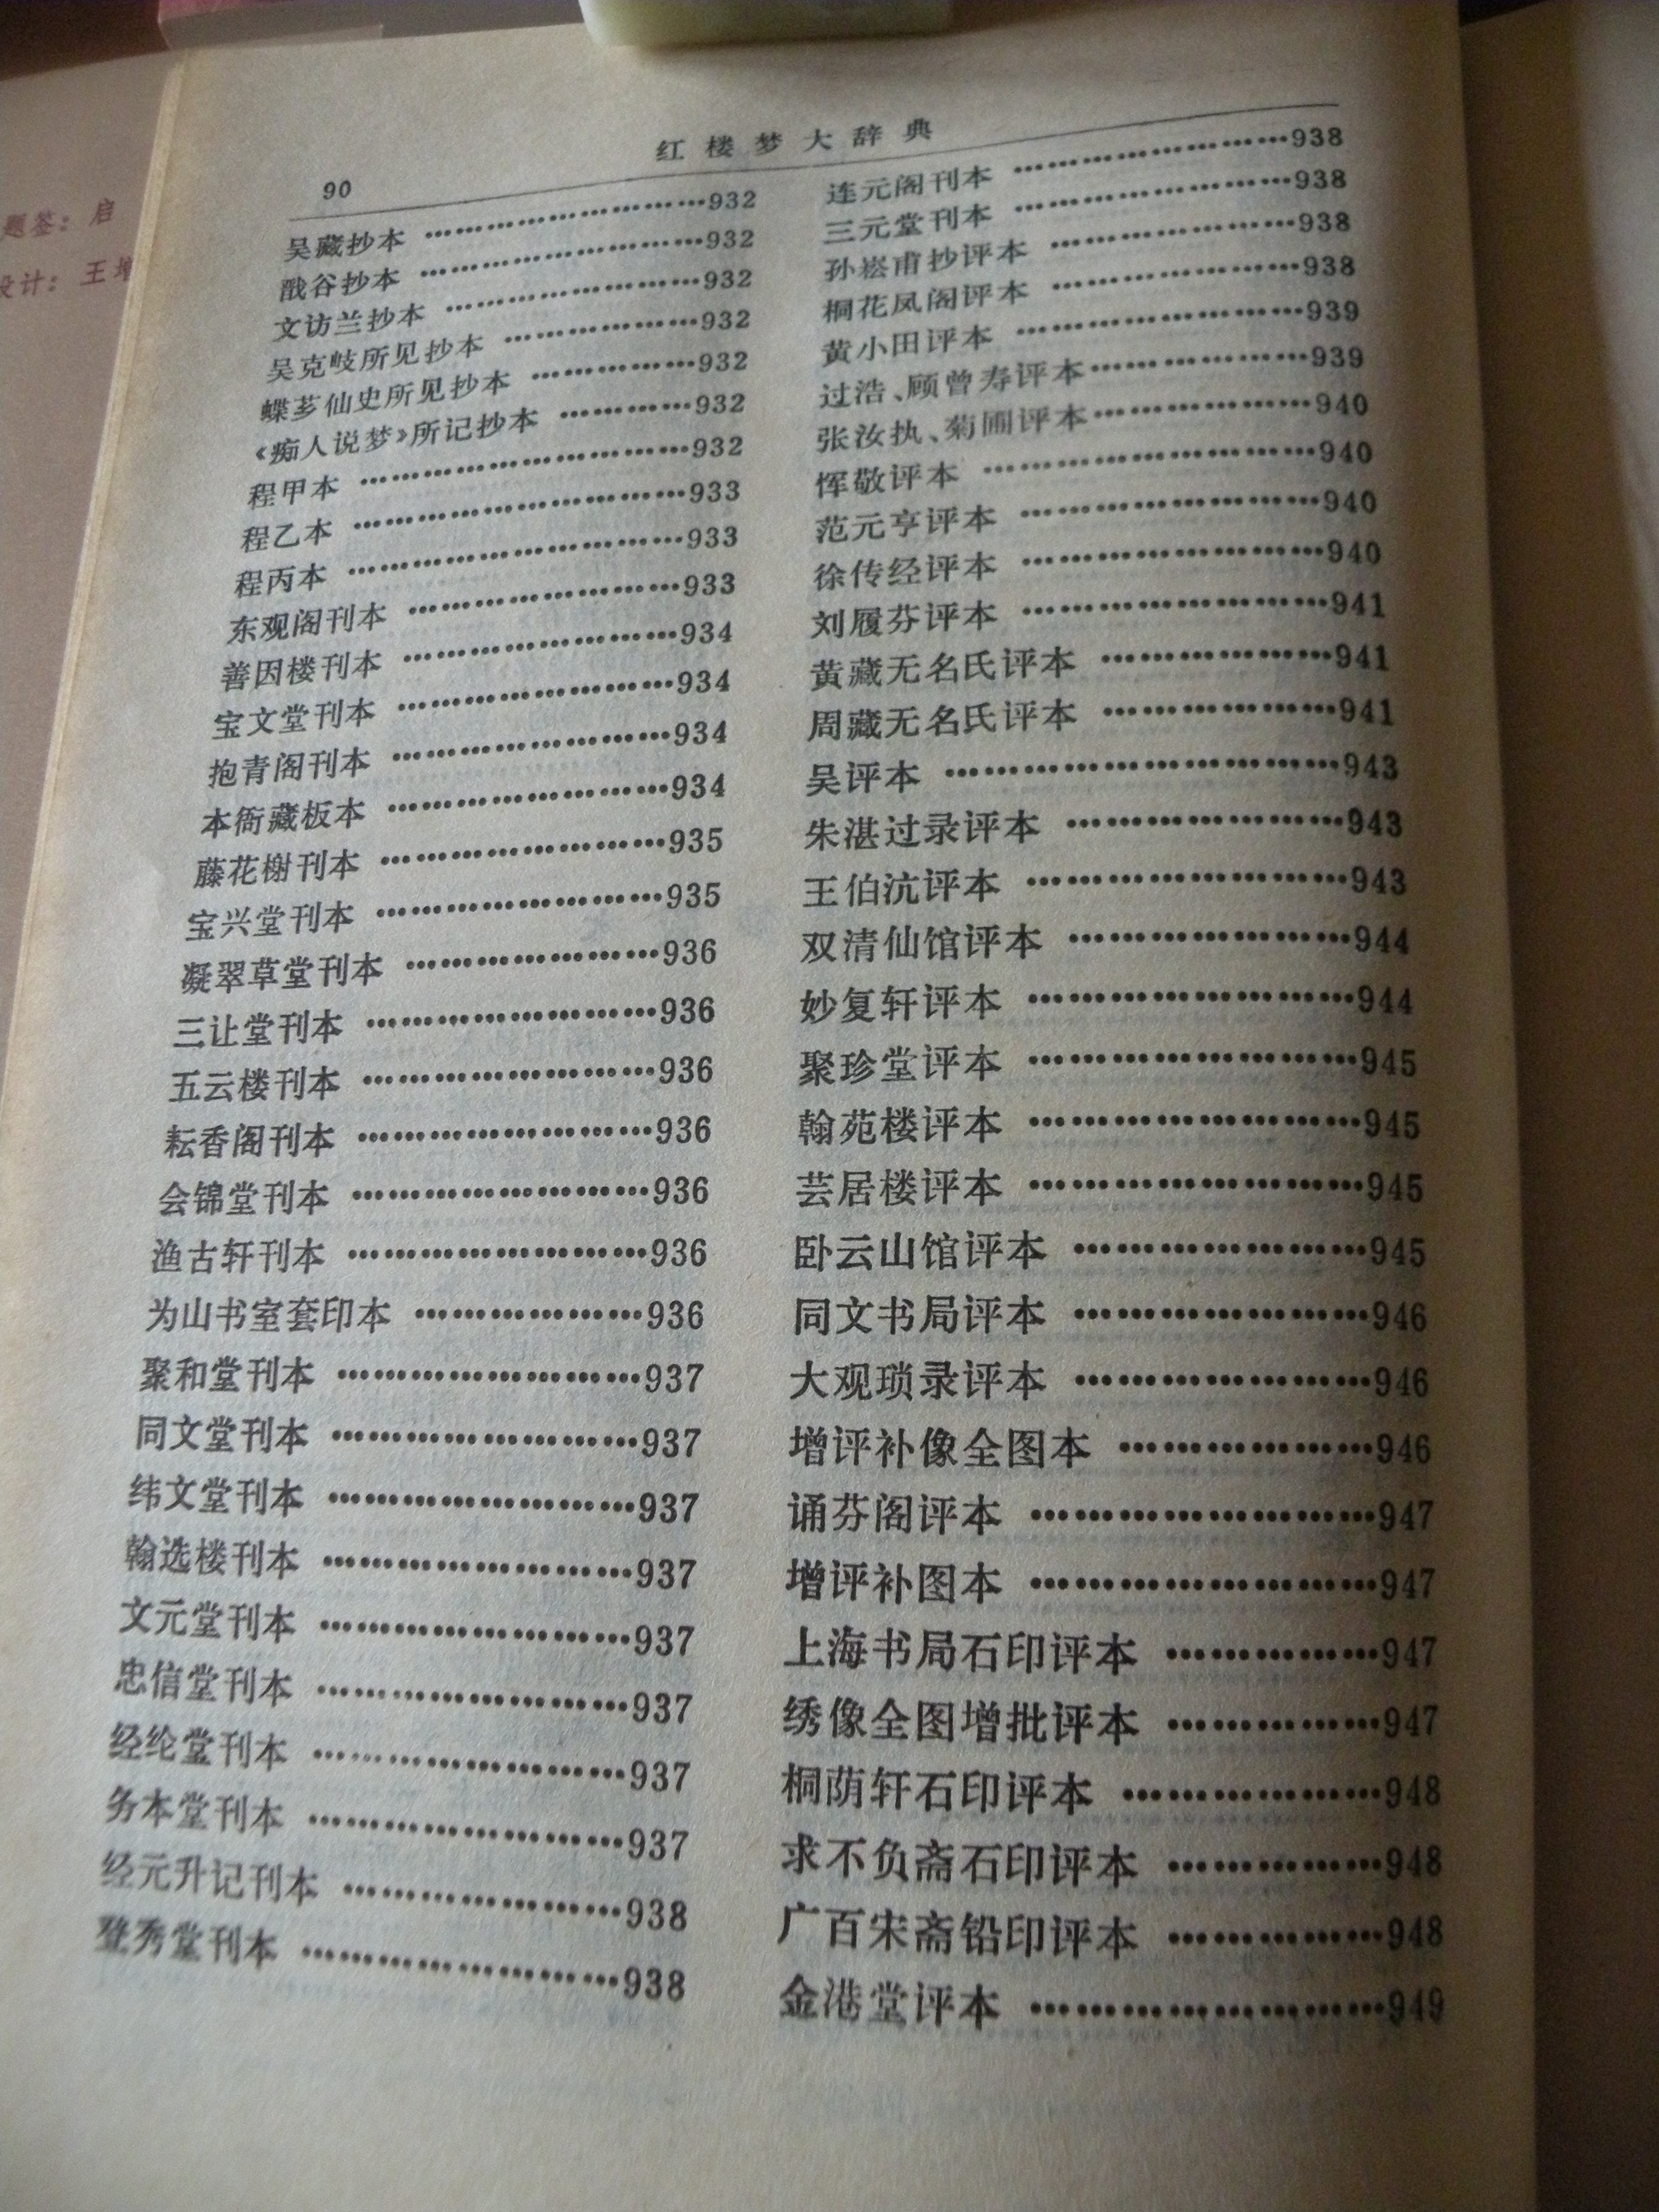 题签：启
设计：王增
红楼梦大辞典
90
吴藏抄本 ……………………932
戬谷抄本 ……………………932
文访兰抄本 …………………932
吴克岐所见抄本 ……………932
蝶芗仙史所见抄本 …………932
《痴人说梦》所记抄本 ………932
程甲本 ………………………932
程乙本 ………………………933
程丙本 ………………………933
东观阁刊本 …………………933
善因楼刊本 …………………934
宝文堂刊本 …………………934
抱青阁刊本 …………………934
本衙藏板本 …………………934
藤花榭刊本 …………………935
宝兴堂刊本 …………………935
凝翠草堂刊本 ………………936
三让堂刊本 …………………936
五云楼刊本 …………………936
耘香阁刊本 …………………936
会锦堂刊本 …………………936
渔古轩刊本 …………………936
为山书室套印本 ……………936
聚和堂刊本 …………………937
同文堂刊本 …………………937
纬文堂刊本 …………………937
翰选楼刊本 …………………937
文元堂刊本 …………………937
忠信堂刊本 …………………937
经纶堂刊本 …………………937
务本堂刊本 …………………937
经元升记刊本 ………………938
登秀堂刊本 …………………938
连元阁刊本 …………………938
三元堂刊本 …………………938
孙崧甫抄评本 ………………938
桐花凤阁评本 ………………938
黄小田评本 …………………939
过浩、顾曾寿评本……………939
张汝执、菊圃评本……………940
恽敬评本 ……………………940
范元亨评本 …………………940
徐传经评本 …………………940
刘履芬评本 …………………941
黄藏无名氏评本 ……………941
周藏无名氏评本 ……………941
吴评本 ………………………943
朱湛过录评本 ………………943
王伯沆评本 …………………943
双清仙馆评本 ………………944
妙复轩评本 …………………944
聚珍堂评本 …………………945
翰苑楼评本 …………………945
芸居楼评本 …………………945
卧云山馆评本 ………………945
同文书局评本 ………………946
大观琐录评本 ………………946
增评补像全图本 ……………946
诵芬阁评本 …………………947
增评补图本 …………………947
上海书局石印评本 …………947
绣像全图增批评本 …………947
桐荫轩石印评本 ……………948
求不负斋石印评本 …………948
广百宋斋铅印评本 …………948
金港堂评本 …………………949